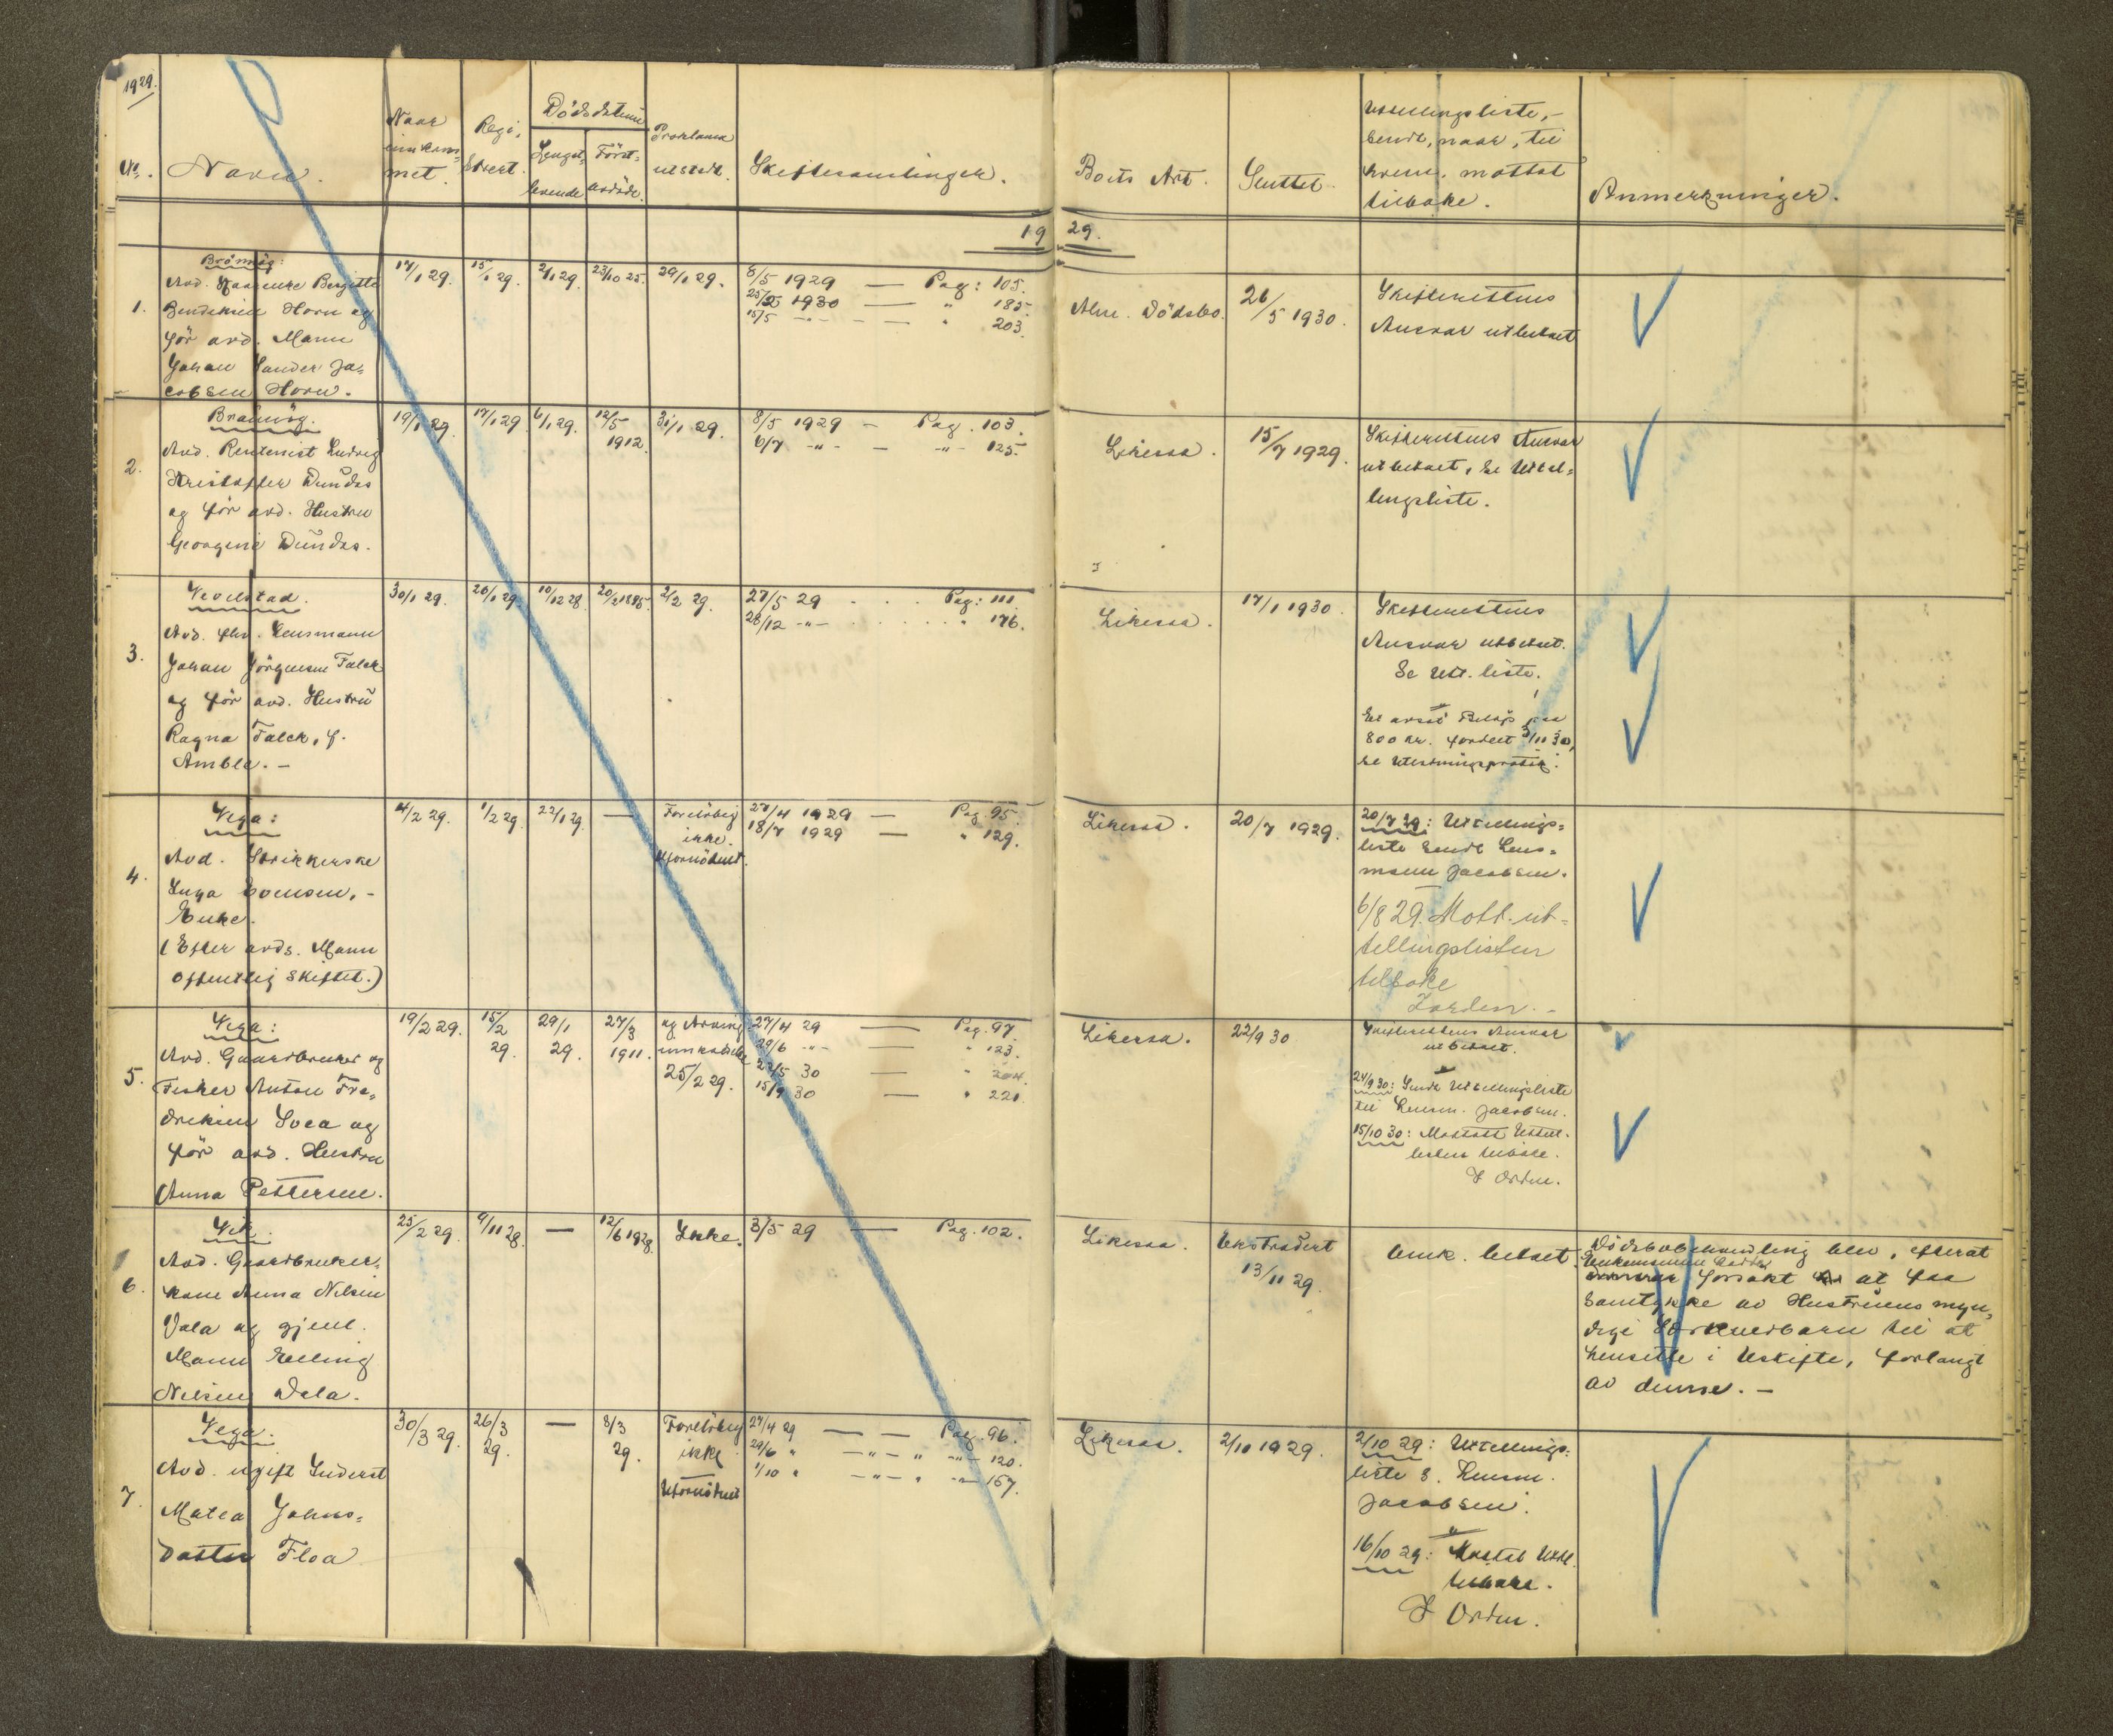 1929.
No. Navn. Naar indkom-met. Regi-strert. Dödsdatum Længst-levende Först-avdöde. Proklama utstedt. Skiftesamlinger. Boets Art. Sluttet. Utdelingsliste,- sendt, naar, til hvem. mottat tilbake. Anmerkninger.
19 29.
Brönnöy:
1. Avd. Bergitte
Bendiksen Horn og
för avd. Mann
Johan Sander Ja-
cobsen Horn.
17/1 29. 15/1 29. 2/1 29. 23/10 25. 29/1 29.
8/5 1929 — Pag: 105.
25/2 1930 — " 185.
15/5 -"- — " 203.
Alm. Dödsbo. 26/5 1930.
Skifterettens
Ansvar utbetalt
Brönnöy.
2. Avd. Rentenist Ludvig
Kristoffer Dundas
og för avd. Hustru
Georgine Dundas.
19/1 29. 17/1 29 6/1 29. 12/5 1912. 31/1 29.
8/5 1929 — Pag. 103.
6/7 -"- — -"- 125.
Likesaa. 15/7 1929.
Skifterettens Ansvar
utbetalt, se Utdel-
lingsliste.
Vevelstad.
3. Avd. fhv. Lensmann
Johan Jörgensen Falck
og för avd. Hustru
Ragna Falck, f.
Amble. -
30/1 29. 26/1 29. 10/12 28. 2/2 29.
27/5 29 . . . Pag: 111.
28/12 -"- . . . . . " 176.
Likesaa. 17/1 1930.
Skifterettens
Ansvar utbetalt.
Se Utd. liste.
Et avsat Beløp paa
800 kr. fordelt 3/11 30,
se
Vega:
4. Avd. Strikkerske
Inga Evensen, -
Enke.
(Efter avds. Mann
offentlig skiftet.)
4/2 29. 1/2 29. 22/1 29. —
Forelöbig
ikke.
Ufornödent.
27/4 1929 — Pag 95.
18/7 1929 — " 129.
Likesaa. 20/7 1929.
20/7 29: Utdelings-
liste sendt Lens-
mann Jacobsen.
6/8 29. Mott. ut-
dellingslisten
tilbake
I orden. -
Vega:
5. Avd. Gaardbruker og
Fisker Anton Fre-
driksen Svea og
för avd. Hustru
Anna Pettersen.
19/2 29. 15/2 29. 29/1 29. 27/3 1911.
og Arving
innkaldelse
25/2 29.
27/4 29 — Pag. 97.
29/6 -"- — " 123.
22/5 30 — " 204.
15/9 30 — " 221.
Likesaa. 22/9 30
Skifterettens Ansvar
utbetalt.
24/9 30: Sendt Utdellingsliste
til Lensm. Jacobsen.
15/10 30: Mottatt Utdel.
listen tilbake.
I Orden.
Vik.
6. Avd. Gaardbruker-
kone Anna Nilsen
Vala og gjenl.
Mann Elling
Nilsen Vala.
25/2 29. 9/11 28. — 12/6 1928. Ikke.
3/5 29 — Pag. 102.
Likesaa. Ekstradert
13/11 29. Omk. betalt.
Dödsbobehandling blev, efterat
Enkemannen hadde
forsøkt at faa
Samtykke av Hustruens myn-
dige Særkuldbarn til at
hensitte i Uskifte, forlangt
av denne. -
Vega.
7. Avd. ugift Inderst
Matea Johns-
datter Floa
30/3 29. 26/3 29. — 8/3 29.
Forelöbig
ikke
Ufornödent
27/4 29 — — Pag. 96.
29/6 " -"- " -"- 120.
1/10 " -"- " -"- 157.
Likesaa. 2/10 1929.
2/10 29: Utdellings-
liste s. Lensm.
Jacobsen.
16/10 29: Mottat Utdl.
tilbake.
I Orden.